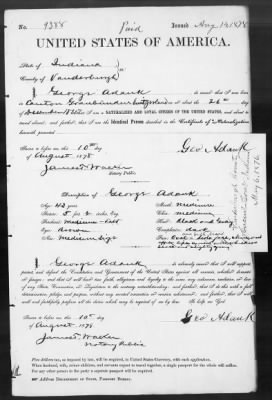 No. 9388 Paid Issued Aug 14 1878
UNITED STATES OF AMERICA.
State of Indiana
County of Vanderburgh
I George Adank do swear that I was born
in Canton Graubünden Switzerland on or about the 26th day
of December that I am a NATURALIZED AND LOYAL CITIZEN OF THE UNITED STATES, and about to
travel abroad; and further, that I am the Identical Person described in the Certificate of Naturalization
herewith presented.
Sworn to before me, this 10th day
of August 1878
Geo Adank
Notary Public
Description of George Adank
Age: 42 years
Stature: 5 feet inches, Eng.
Forehead: medium
Eyes: brown
Nose: medium size
Mouth: medium
Chin: medium
Hair: black and Gray
Complexion: dark
Face:
Vanderburgh County
Indiana
May 6, 1876
I George Adank do solemnly swear that I will support,
protect, and defend the Constitution and Government of the United States against all enemies, whether domestic
or foreign; and that I will bear true faith, allegiance and loyalty to the same, any ordinance, resolution, or law of
any State Convention or Legislature to the contrary notwithstanding; and further, that I do this with a full
determination, pledge, and purpose, without any mental reservation or evasion whatsoever; and further, that I will
well and faithfully perform all the duties which may be required of me by law: So help me God.
Sworn to before me, this 10th day
of August 1878
Geo Adank
Notary Public
Five dollars tax, as imposed by law, will be required, in United States Currency, with each application.
When husband, wife, minor children, and servants expect to travel together, a single passport for the whole will suffice.
For any other person in the party a separate passport will be required.
Address DEPARTMENT OF STATE, PASSPORT BUREAU.